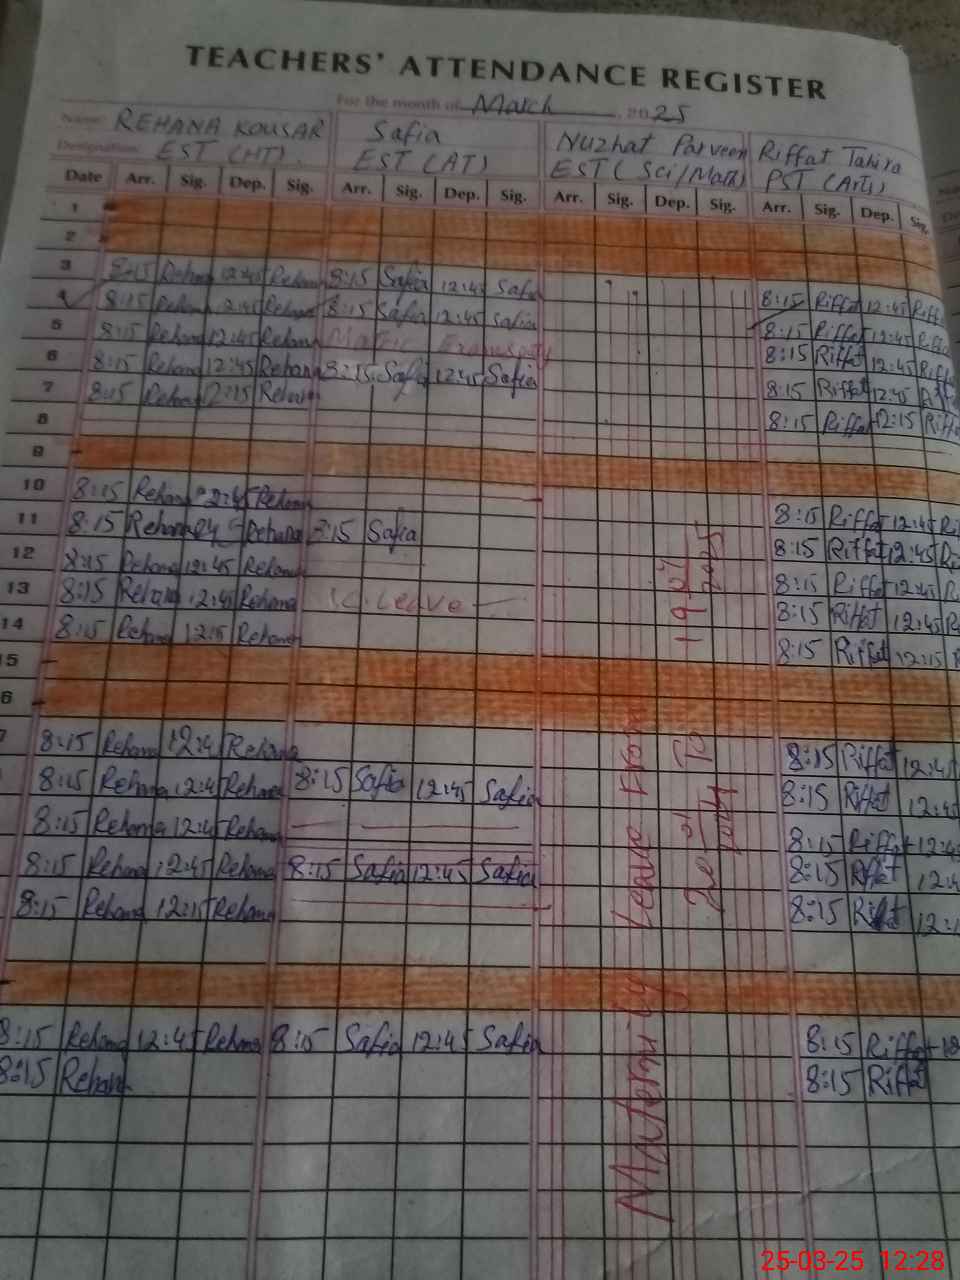 TEACHERS' ATTENDANCE REGISTER
For the month of March 2025
Name: REHANA KOUSAR Safia Nuzhat Parveen Riffat Tahira
Designation: EST (HT). EST (AT) EST (Sci/Math) PST (Arts)
Date Arr. Sig. Dep. Sig. Arr. Sig. Dep. Sig. Arr. Sig. Dep. Sig. Arr. Sig. Dep. Sig.
1
2
3 8:15 Rehana 12:45 Rehana 8:15 Safia 12:45 Safia 8:15 Riffat 12:45 Riff
4 8:15 Rehana 12:45 Rehana 8:15 Safia 12:45 Safia 8:15 Riffat 12:45 Riff
5 8:15 Rehana 12:45 Rehana Matric 8:15 Riffat 12:45 Riff
6 8:15 Rehana 12:45 Rehana 8:15 Safia 12:45 Safia 8:15 Riffat 12:45
7 8:15 Rehana 12:15 Rehana 8:15 Riffat 12:15 Riff
8
9
10 8:15 Rehana 12:45 Rehana 8:15 Riffat 12:45 Ri
11 8:15 Rehana Rehana 8:15 Safia 8:15 Riffat 12:45 Ri
12 8:15 Rehana 12:45 Rehana 8:15 Riffat 12:45 R
13 8:15 Rehana 12:45 Rehana C. Leave 8:15 Riffat 12:45 R
14 8:15 Rehana 12:15 Rehana 8:15 Riffat 12:15 R
15
6
7 8:15 Rehana 12:45 Rehana 8:15 Riffat 12:45
8:15 Rehana 12:45 Rehana 8:15 Safia 12:45 Safia 8:15 Riffat 12:45
8:15 Rehana 12:45 Rehana 8:15 Riffat 12:45
8:15 Rehana 12:45 Rehana 8:15 Safia 12:45 Safia 8:15 Riffat 12:4
8:15 Rehana 12:15 Rehana 8:15 Riffat 12:1
8:15 Rehana 12:45 Rehana 8:15 Safia 12:45 Safia 8:15 Riffat 12
8:15 Rehana 8:15 Riffat
Maternity Leave From
To
2025
25-03-25 12:28